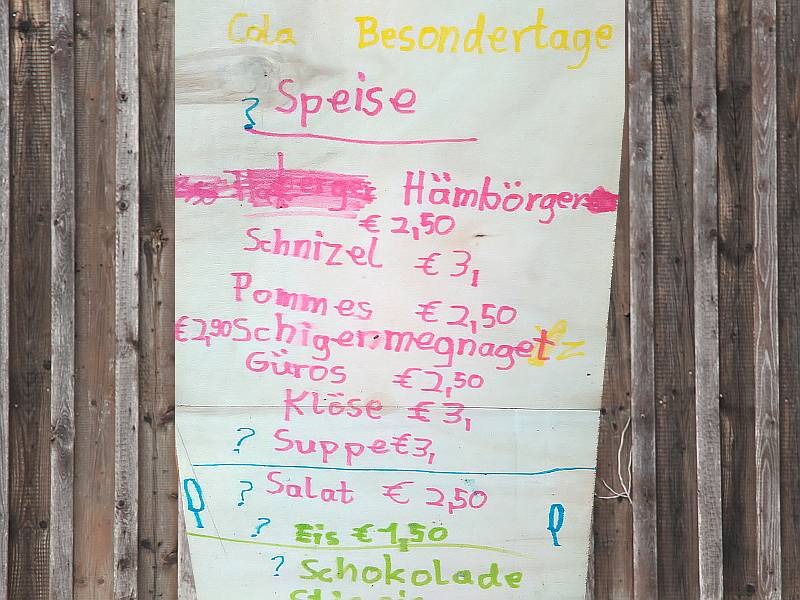 Cola Besondertage
? Speise
Hämbörger
€ 2,50
Schnizel € 3,
Pommes € 2,50
€2,90 Schigermegnaget
Güros € 2,50
Klöse € 3,
? Suppe €3,
? Salat € 2,50
? Eis € 1,50
? Schokolade